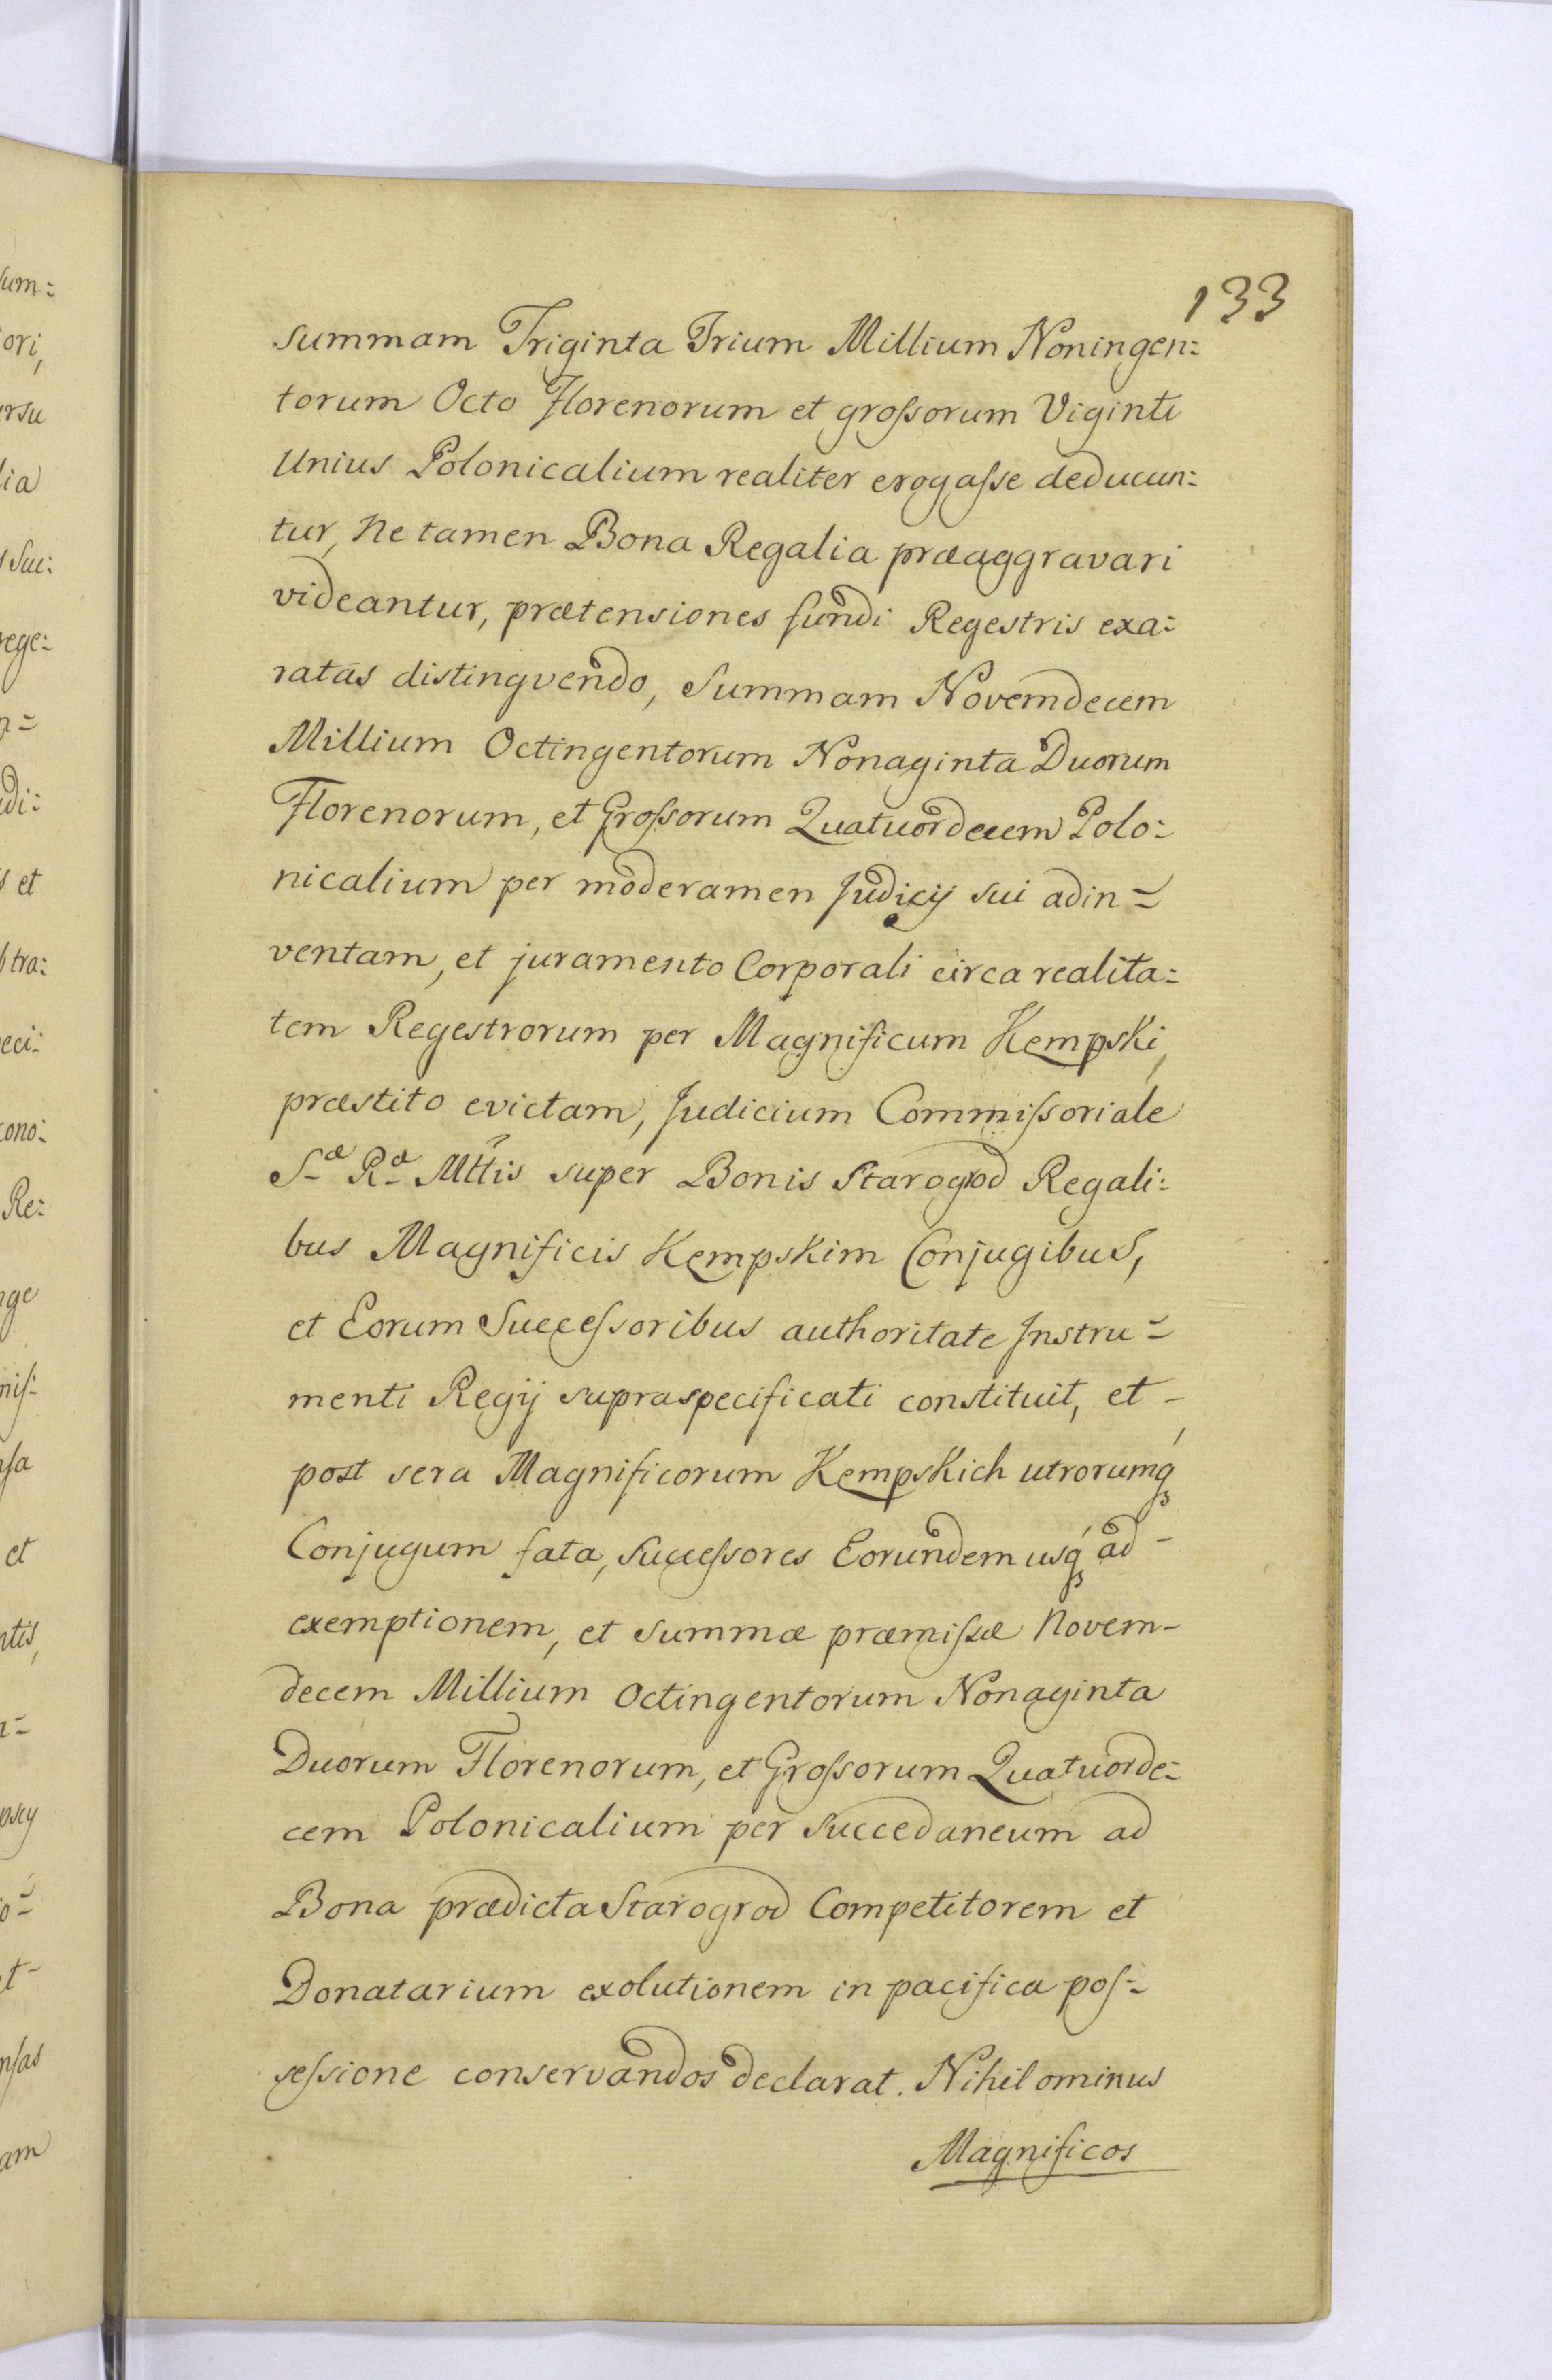 133
summam Triginta Trium Millium Noningen:
torum Octo Florenorum et groſsorum Viginti
Unius Polonicalium realiter erogaſse deducun:
tur, Ne tamen Bona Regalia præaggravari
videantur, prætensiones fundi Regestris exa:
ratas distingvendo, Summam Novemdecem
Millium Octingentorum Nonaginta Duorum
Florenorum, et Groſsorum Quatuordecem Polo:
nicalium per moderamen Judicij sui adin=
ventam, et juramento Corporali circa realita:
tem Regestrorum per Magnificum Kempski,
præstito evictam, Judicium Commiſsoriale
Sæ Ræ Mttis super Bonis Starogrod Regali:
bus Magnificis Kempskim Conjugibus,
et Eorum Succeſsoribus authoritate Instru=
menti Regij supraspecificati constituit, et -
post sera Magnificorum Kempskich utrorumq́
Conjugum fata, succeſsores Eorundem usq́ ad -
exemptionem, et summæ præmiſsæ Novem-
decem Millium Octingentorum Nonaginta
Duorum Florenorum, et Groſsorum Quatuorde:
cem Polonicalium per Succedaneum ad
Bona prædicta Starogrod Competitorem et
Donatarium exolutionem in pacifica poſ=
seſsione conservandos declarat. Nihilominus
Magnificos
um:
ori,
ursu
lia
Suc:
rege:
n=
udi:
s et
tra:
eci:
cono:
Re:
nge
miſ:
nſa
et
ntis,
pscy
nſas
am